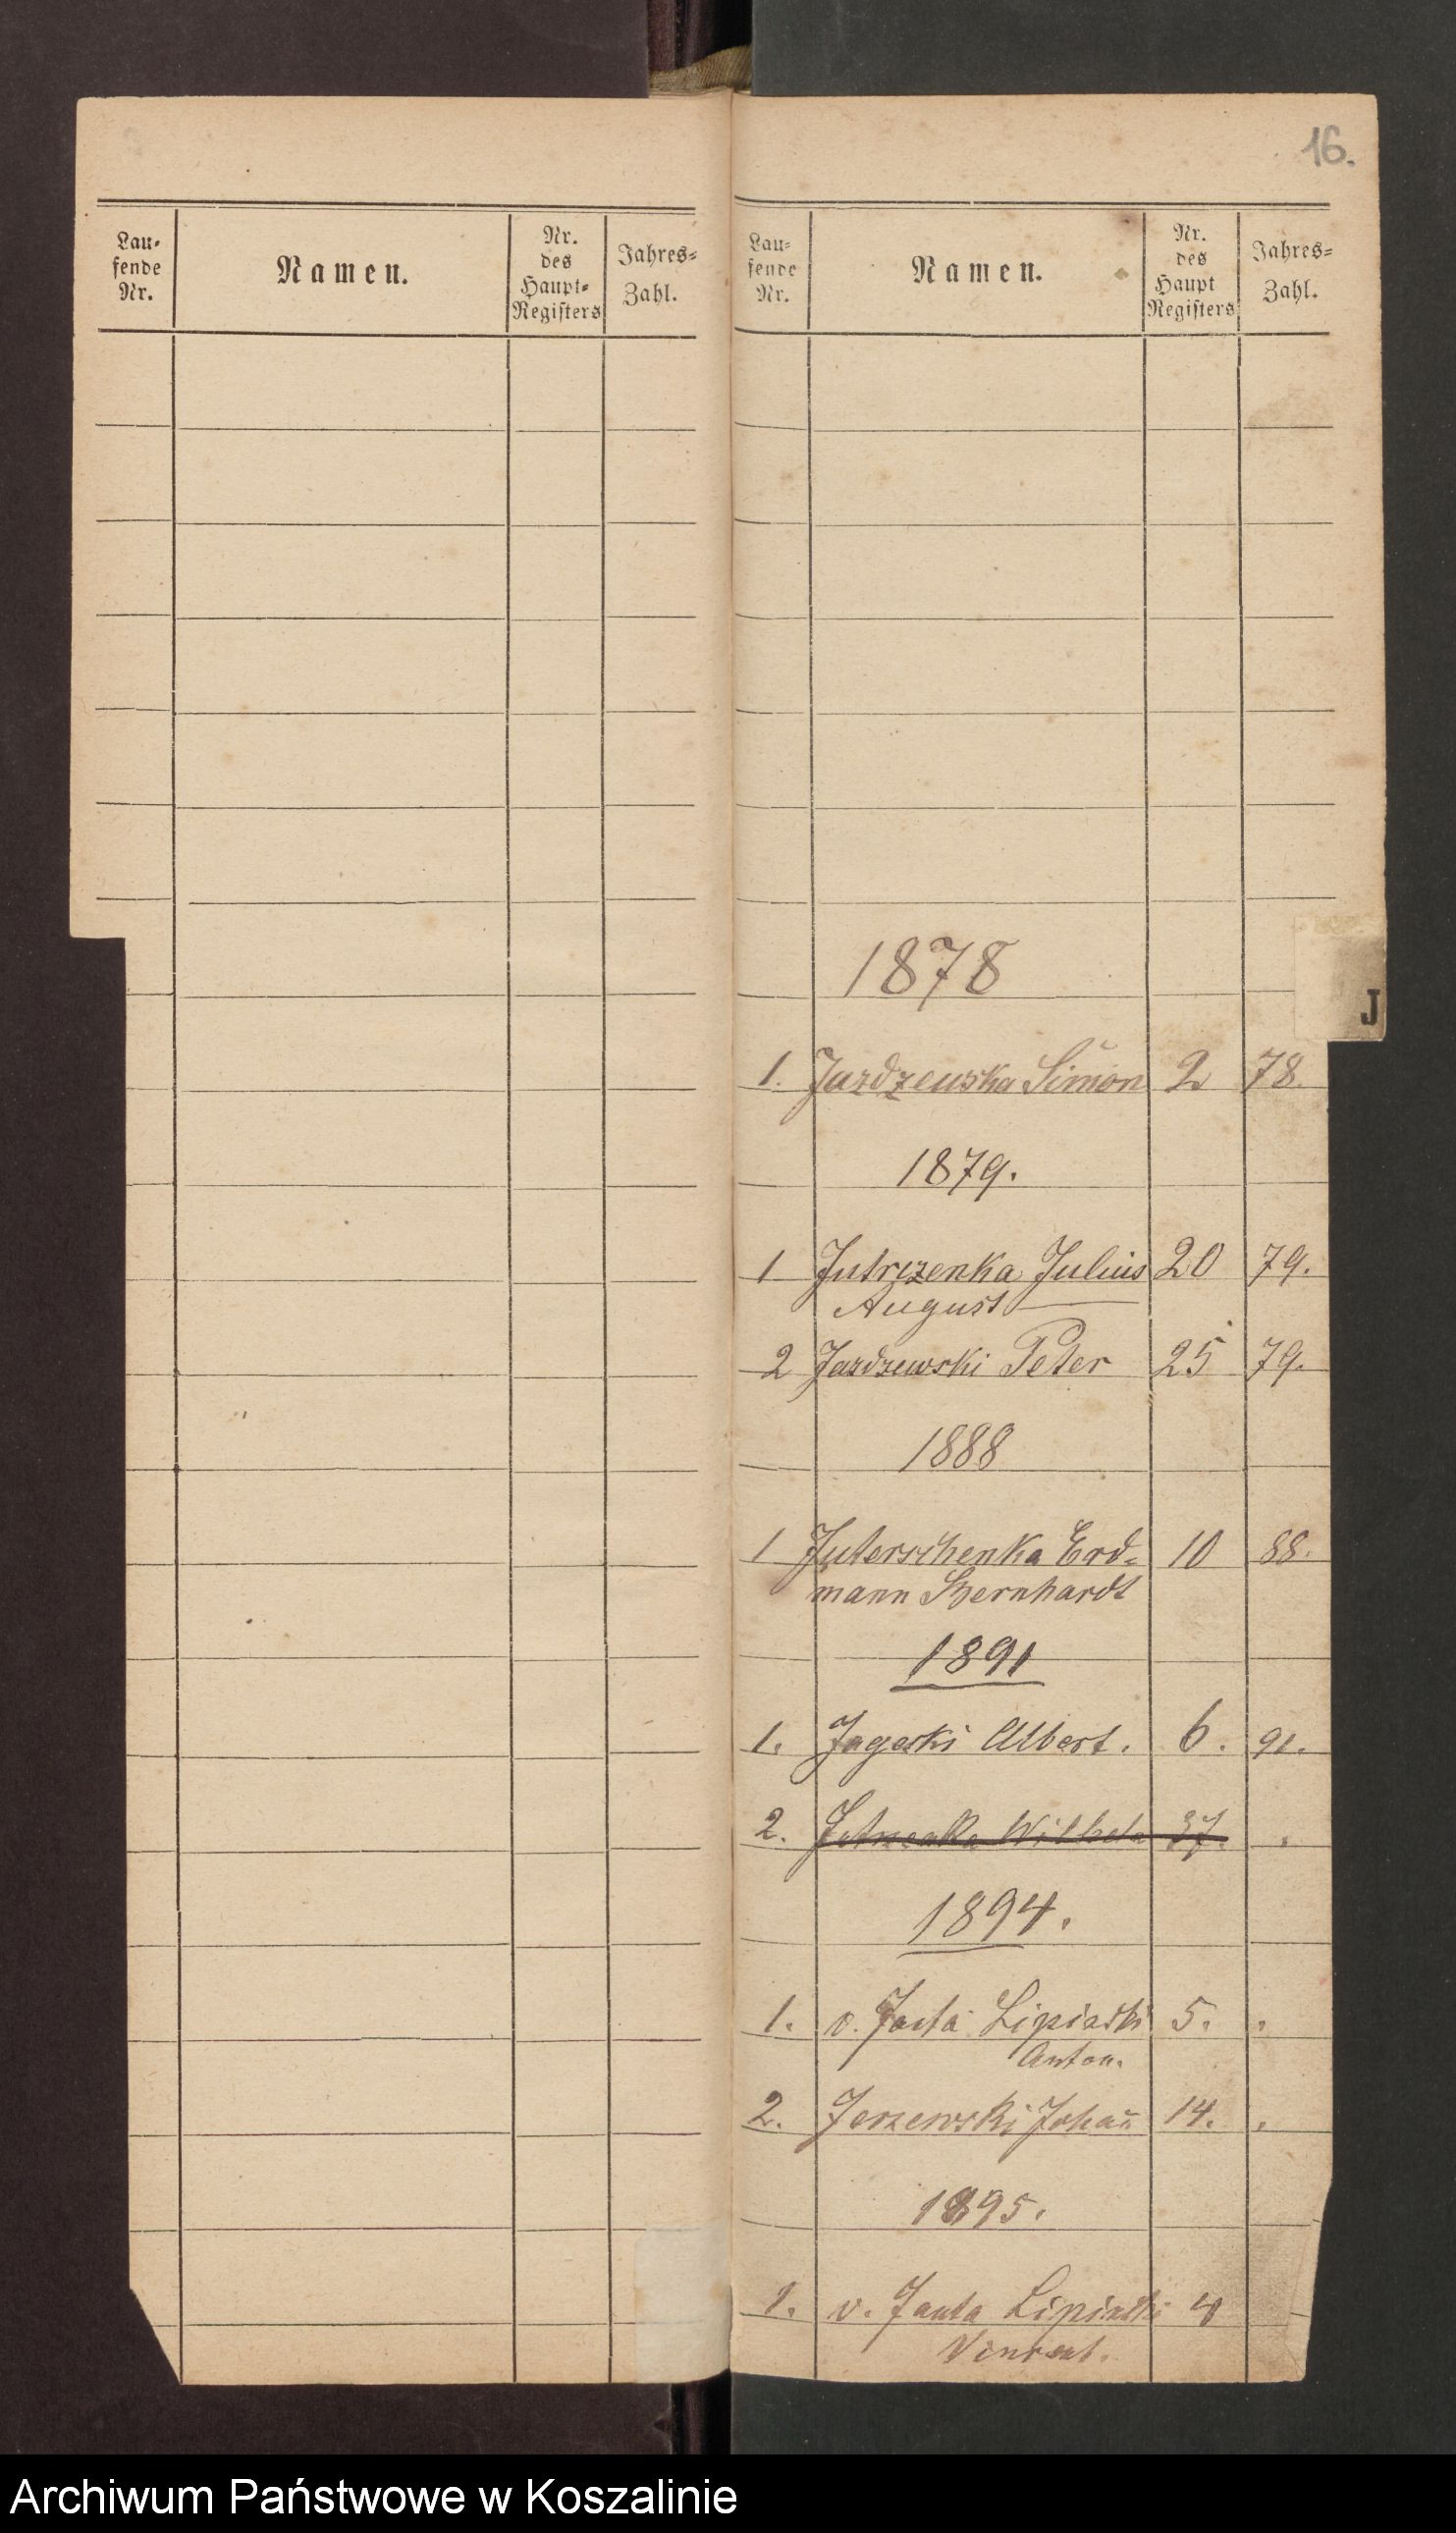 16.
Lau-
fende
Nr.
Namen.
Nr.
des
Haupt-
Registers
Jahres-
Zahl.
Lau-
fende
Nr.
Namen.
Nr.
des
Haupt
Registers
Jahres-
Zahl.
1878
J
1. Jazdzewska Simon 2 78.
1879.
1 Jutrczenka Julius 20 79.
August
2 Jazdzewski Peter 25 79.
1888
1 Juterschenka Erd- 10 88.
mann Bernhardt
1891
1. Jageski Albert. 6. 91.
2. Jutrzenka Wilhelm 37.
1894.
1. v. Jauta Lipinski 5. "
Anton.
2. Jerzewski Johañ 14. "
1895.
1. v. Jauta Lipinski 4
Vincent.
Archiwum Państwowe w Koszalinie